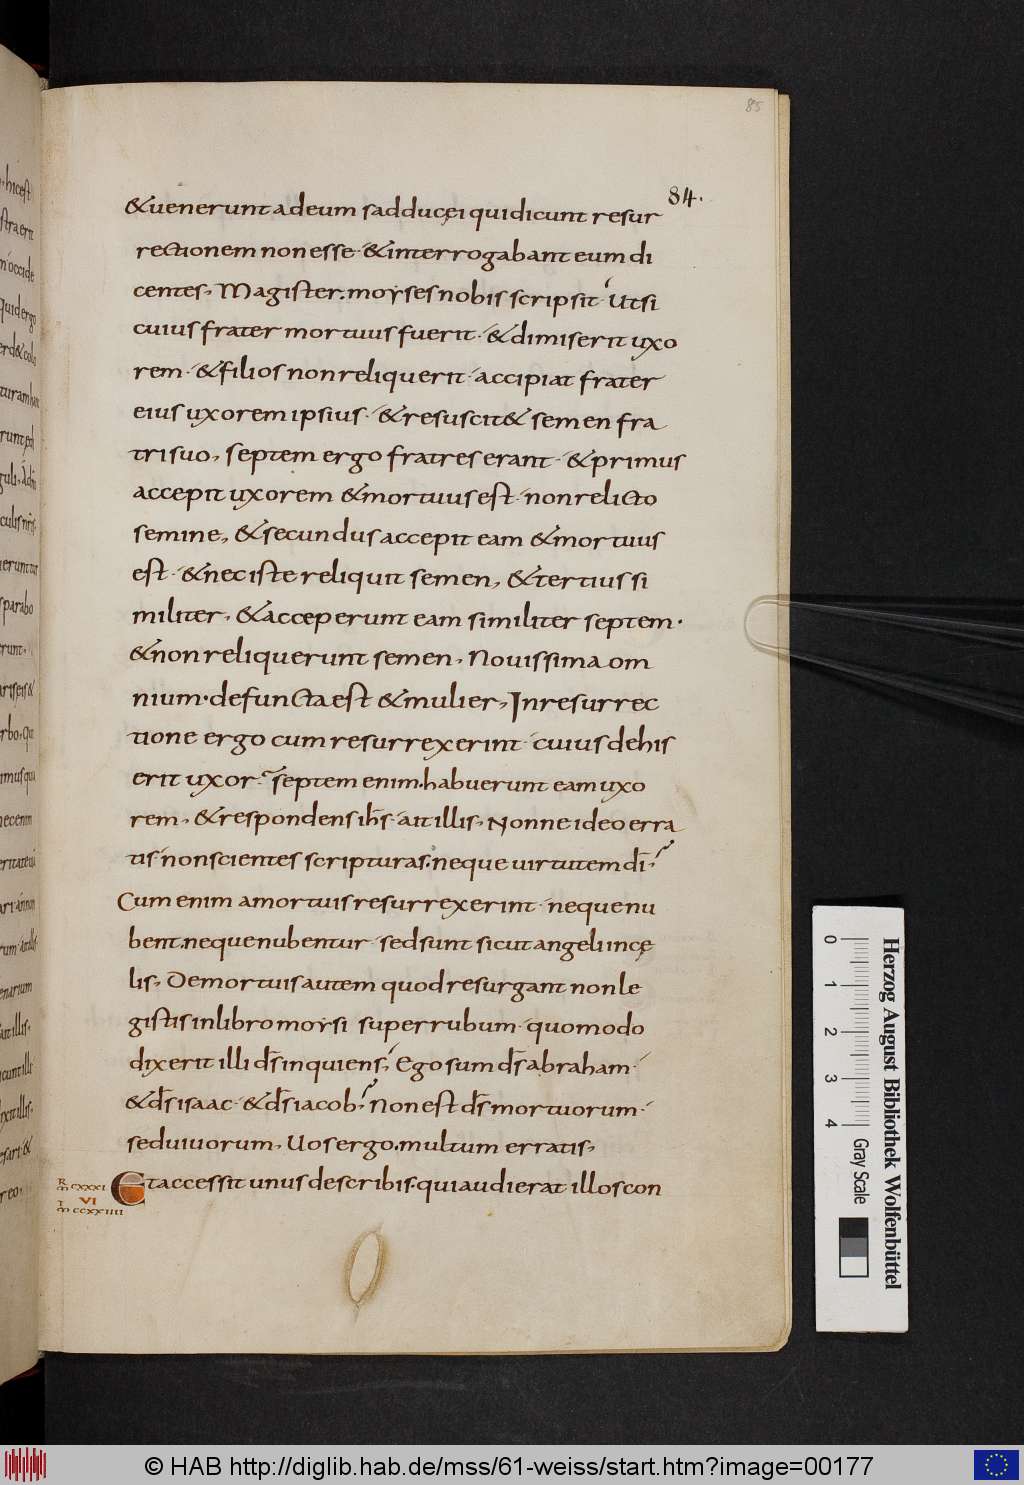 85
84.
&uenerunt adeum sadducęi quidicunt resur
rectionem nonesse · &interrogabant eum di
centes, Magister. moyses nobis scripsit · Utsi
cuius frater mortuus fuerit · &dimiserit uxo
rem · &filios nonreliquerit · accipiat frater
eius uxorem ipsius · &resuscit& semen fra
tri suo, septem ergo fratres erant · &primus
accepit uxorem &mortuus est · nonrelicto
semine, &secundus accepit eam &mortuus
est · &nec iste reliquit semen, &tertius si
militer, &acceperunt eam similiter septem ·
&non reliquerunt semen, Nouissima om
nium · defuncta est &mulier, Inresurrec
tione ergo cum resurrexerint · cuius dehis
erit uxor? septem enim. habuerunt eam uxo
rem, &respondens ihs · ait illis, Nonne ideo erra
tis · nonscientes scripturas. neque uirtutem di?
Cum enim amortuis resurrexerint · neque nu
bent. neque nubentur · sed sunt sicut angeli incę
lis, Demortuis autem quod resurgant nonle
gistis inlibro moysi super rubum · quomodo
dixerit illi ds inquiens, Ego sum ds abraham ·
&ds isaac · &ds iacob? Non est ds mortuorum ·
sed uiuorum, Uos ergo. multum erratis,
Et accessit unus describis · qui audierat illos con
R
m CXXXI
VI
I
m CCXXIIII
Herzog August Bibliothek Wolfenbüttel
0 1 2 3 4
Gray Scale
© HAB http://diglib.hab.de/mss/61-weiss/start.htm?image=00177